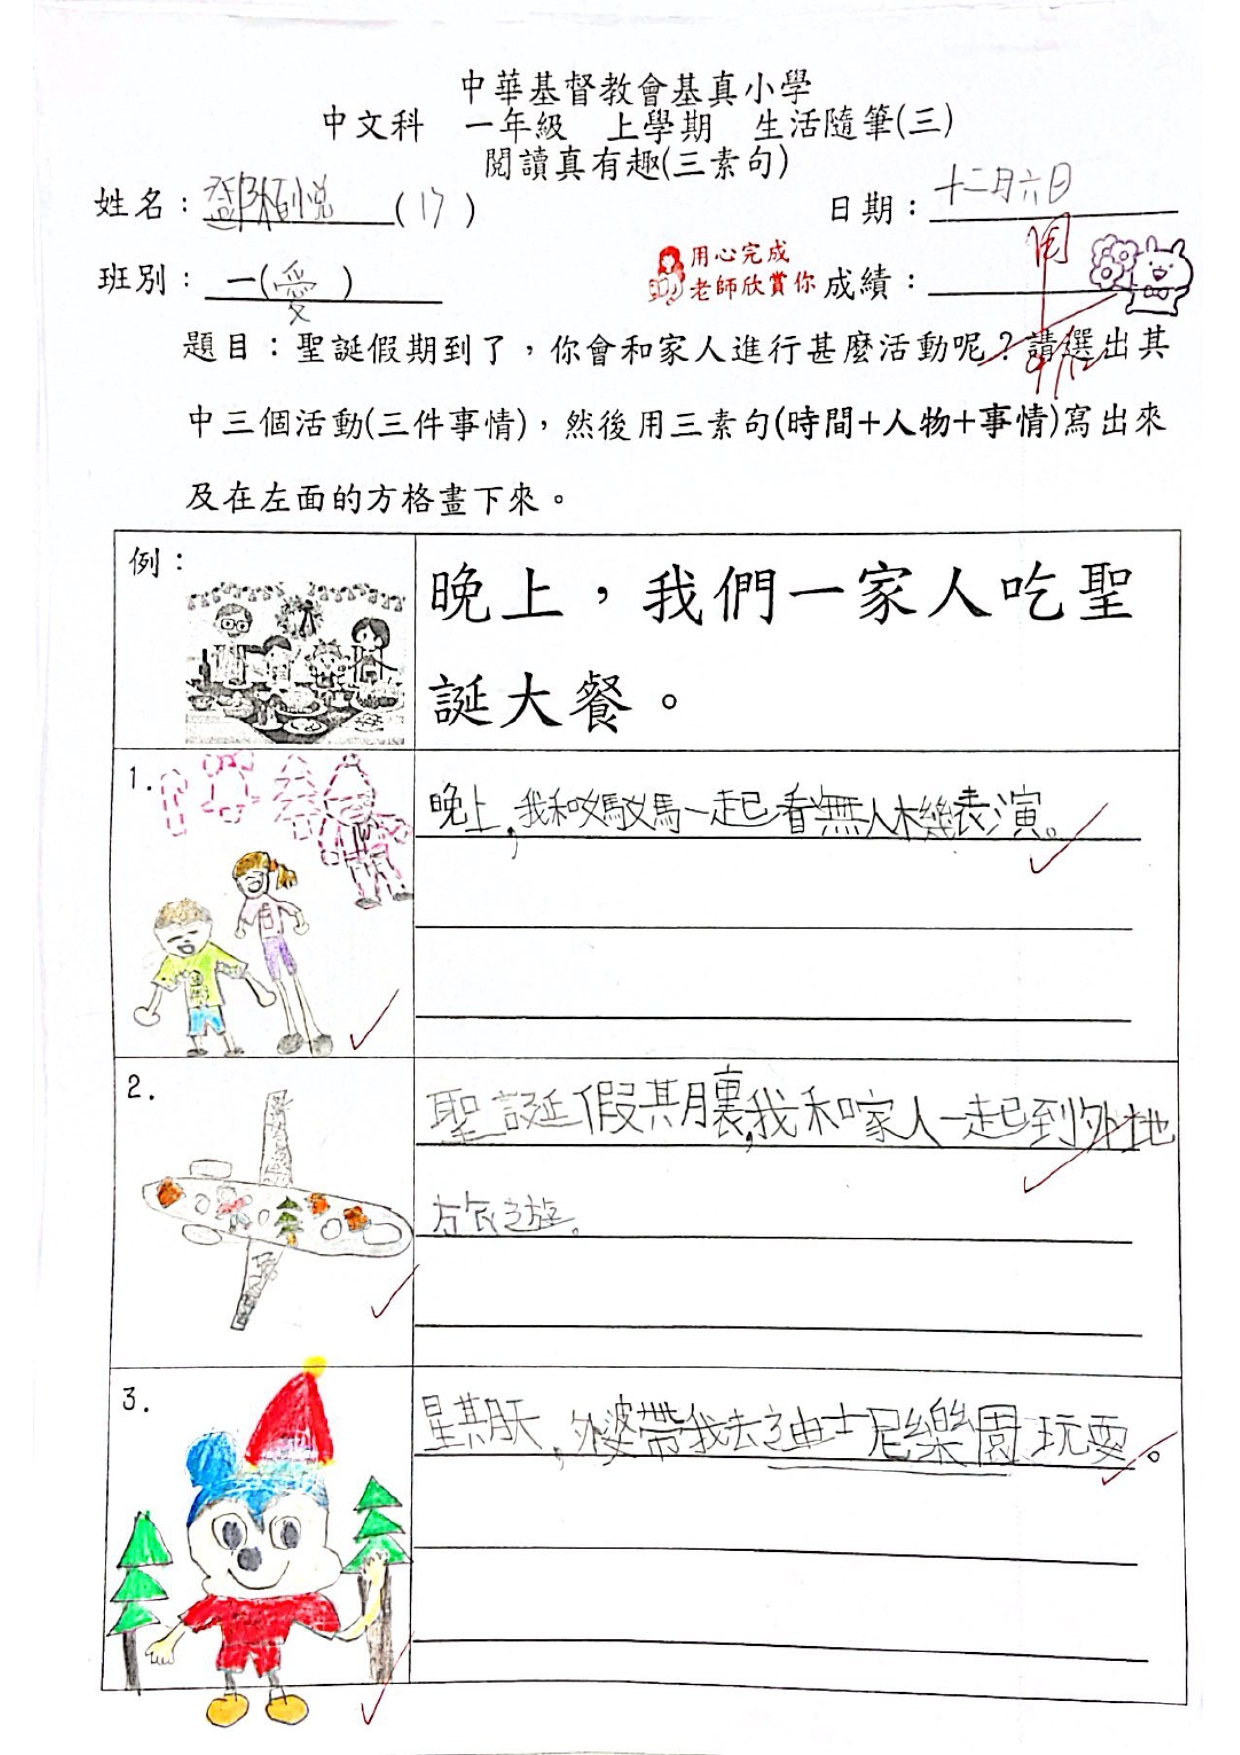 中華基督教會基真小學
中文科　一年級　上學期　生活隨筆(三)
閱讀真有趣(三素句)
姓名：鄧栢悅(17)
日期：十二月六日
班別：一(愛)
用心完成
老師欣賞你
成績：
閱
9/12
題目：聖誕假期到了，你會和家人進行甚麼活動呢？請選出其
中三個活動(三件事情)，然後用三素句(時間+人物+事情)寫出來
及在左面的方格畫下來。
例：
晚上，我們一家人吃聖
誕大餐。
1.
晚上，我和媽媽一起看無人機表演。
2.
聖誕假期裏，我和家人一起到外地
旅遊。
3.
星期天，外婆帶我去迪士尼樂園玩耍。